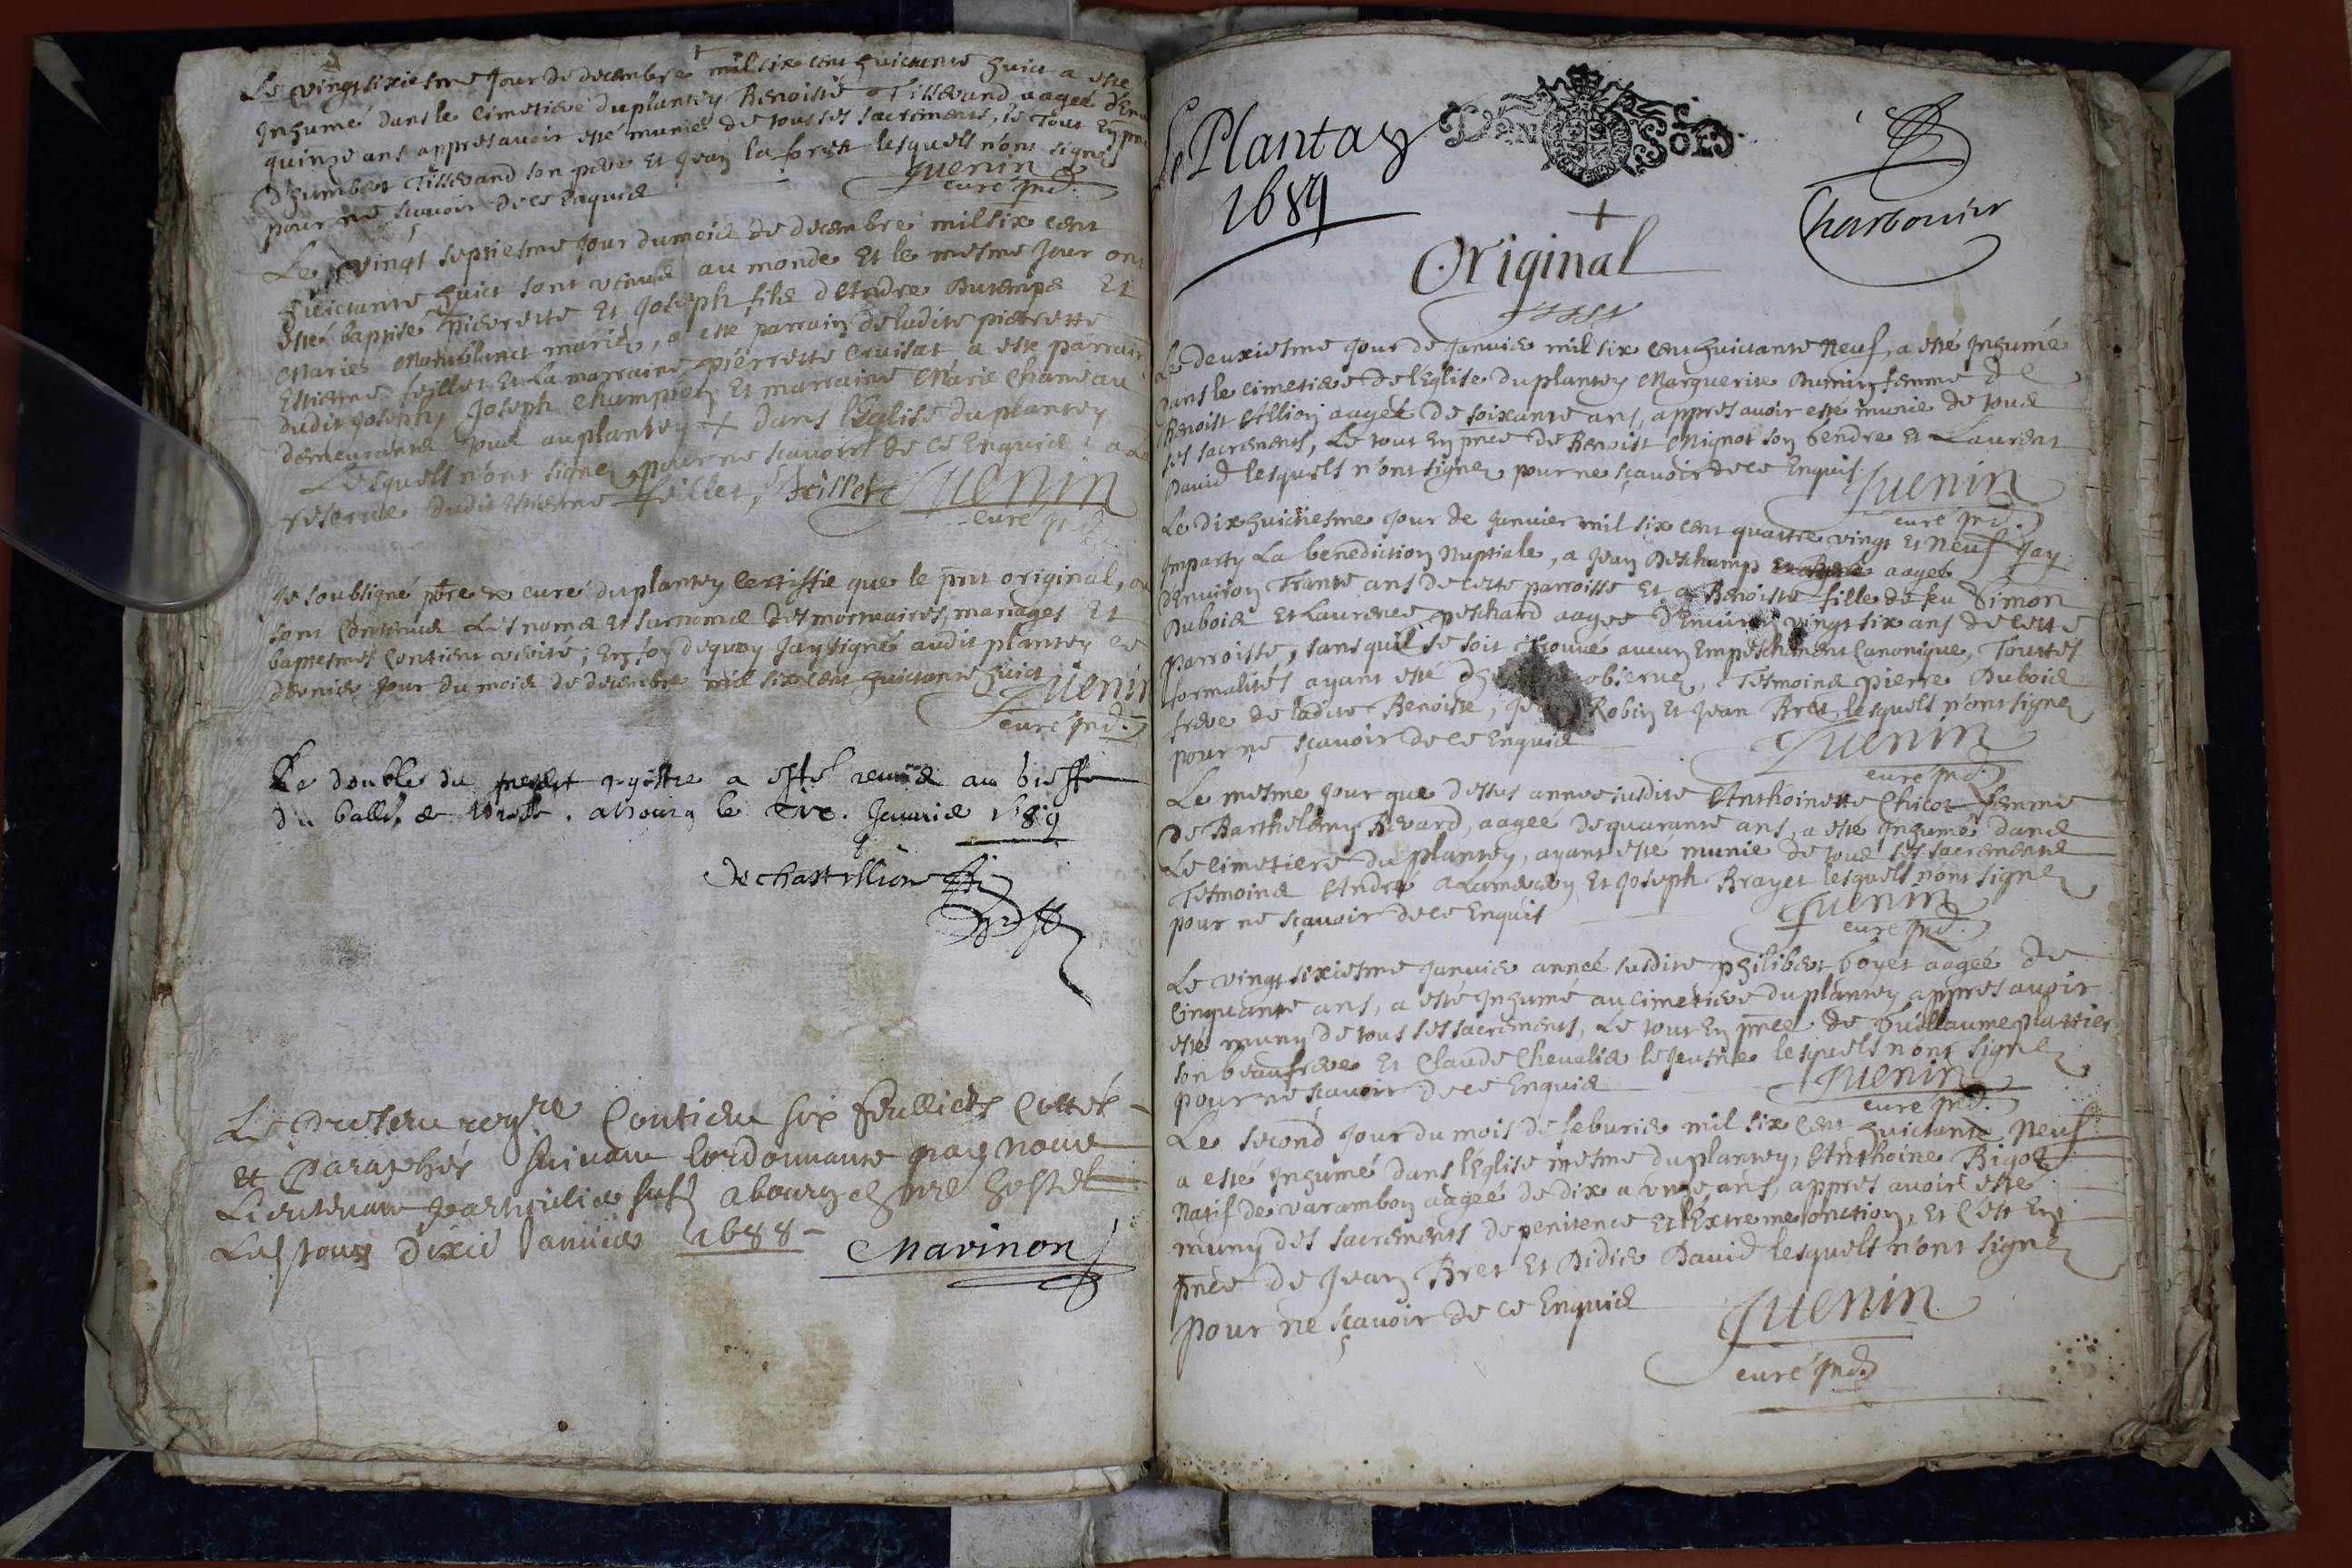 Le vingtsixiesme Jour de decembre mil six cent huictante huict a esté
Inhumé dans le cimetiere du plantey Benoiste Tisserand aageé d'Env
quinze ans appres avoir esté munie de tous ses sacrements, le tout En pnce
d'humbert Tisserand son pere Et Jean la forest lesquels n'ont signés
pour ne sçavoir de ce Enquis
Juenin
curé pnt.
Le vingt septiesme Jour du mois de decembre mil six cent
huictante huict sont venus au monde Et le mesme Jour ont
esté baptisé Pierrette Et Joseph fils d'Andre Dutemps Et
Marie mariés, a esté parrain de ladite pierrette
Estienne feillet Et La marraine pierrette Cruisat, a esté parrain
dudit Joseph, Joseph Champion Et marraine Marie Chaneau
demeurants tous au plantey + dans l'Eglise du plantey
Lesquels n'ont signez pour ne scavoir de ce Enquis a la
reserve dudit Estienne feillet, feillet Juenin
curé pnt.
Je soubsigné pbre & curé du plantey Certiffie que le pnt original, ou
sont Contenus Les noms et surnoms des mortuaires, mariages Et
baptesmes Contient verité; En foy dequoy Jay signé audit plantey ce
dernier Jour du mois de decembre mil six cent huictante huict
Juenin
curé pnt.
Le double du present registre a esté remis au greffe
du balle de Bresse. a bourg le Janvier 1689
de chastillion
Le present regre Contient six feulliets Cottés
et Paraphés suivant lordonnance par nous
Lieutenant particulier a bourg en nre hostel
dixie Janvier 1688
Marinon
Le Plantay
1689
DEN SOLS
Charbonier
+
Original
Le deuxiesme Jour de Janvier mil six cent huictante Neuf, a esté Inhumé
Dans le cimetiere de l'Eglise du plantey Marguerite Dumin femme de
Benoist Allion aageé de soixante ans, appres avoir esté munie de tous
ses sacrements, Le tout En pnce de Benoist Mignot son gendre Et Laurent
David lesquels n'ont signez pour ne sçavoir de ce Enquis.
Juenin
curé pnt.
Le dixhuictiesme Jour de Janvier mil six cent quattre vingt Et Neuf Jay
Imparty La benediction Nuptiale, a Jean Deschamp aagée
d'Environ Trante ans de cette parroisse Et a Benoiste fille de feu Simon
Dubois Et Laurence peschard aageé d'Environ vingt six ans de cette
parroisse, sans quil se soit trouvé aucun Empeschement Canonique, Touttes
formalités ayant esté observez, Tesmoins pierre Dubois
frere de ladite Benoiste, Robin Et Jean Bret, lesquels n'ont signez
pour ne sçavoir de ce Enquis
Juenin
curé pnt.
Le mesme Jour que dessus anneé susdite Anthoinette Chicot femme
de Barthelemy Bevard, aageé de quarante ans, a esté Inhumé dans
Le cimetiere du plantey, ayant esté munie de tous ses sacrements
Tesmoins André Alamercery Et Joseph Brayet lesquels n'ont signez
pour ne sçavoir de ce Enquis
Juenin
curé pnt.
Le vingt sixiesme Janvier anneé susdite philibert boyet aageé de
Cinquante ans, a esté Inhumé au cimetiere du plantey appres avoir
esté muny de tous ses sacrements, Le tout En pnce de Guillaume plattier
son beaufrere Et Claude Chevalier le Jeusne lesquels n'ont signez
pour ne scavoir de ce Enquis
Juenin
curé pnt.
Le second Jour du mois de feburier mil six Cent huictante Neuf
a esté Inhumé dans l'Eglise mesme du plantey, Anthoine Rigot
Natif de varambon aageé de dix a unze ans, appres avoir esté
muny des sacrements de penitence Et Extreme onction, Et C'est En
pnce de Jean Bret Et Didier David lesquels n'ont signez
pour ne scavoir de ce Enquis
Juenin
curé pnt.